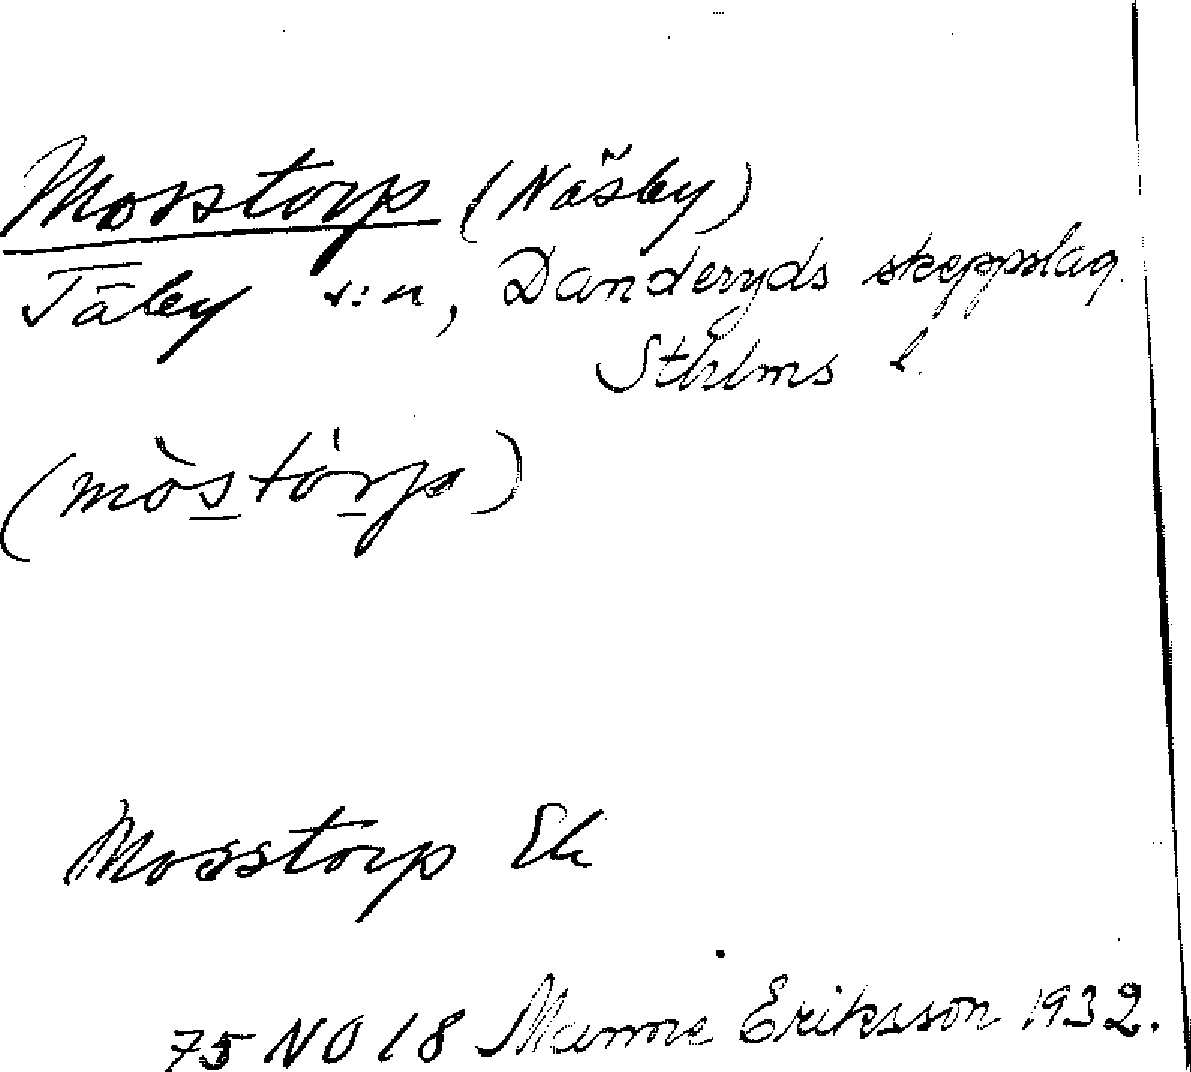 Mosstorp (Näsby)
Täby s:n, Danderyds skeppslag.
Sthlms l.
(mòstórp)
Mosstorp Ek
75 NO 18 Manne Eriksson 1932.